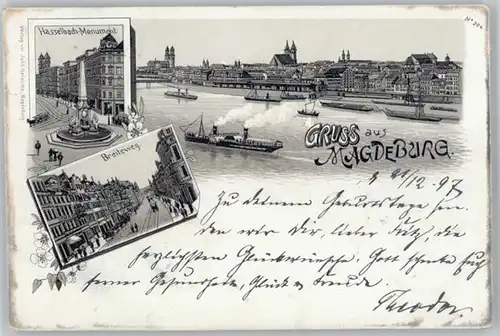 Hasselbach-Monument.
Breiteweg.
GRUSS aus
MAGDEBURG.
12.97
Zu deinem Geburtstage sen-
den wir dir, lieber Fritz, die
herzlichsten Glückwünsche. Gott schenke Euch
ferner Gesundheit, Glück u Freude.
Theodor.